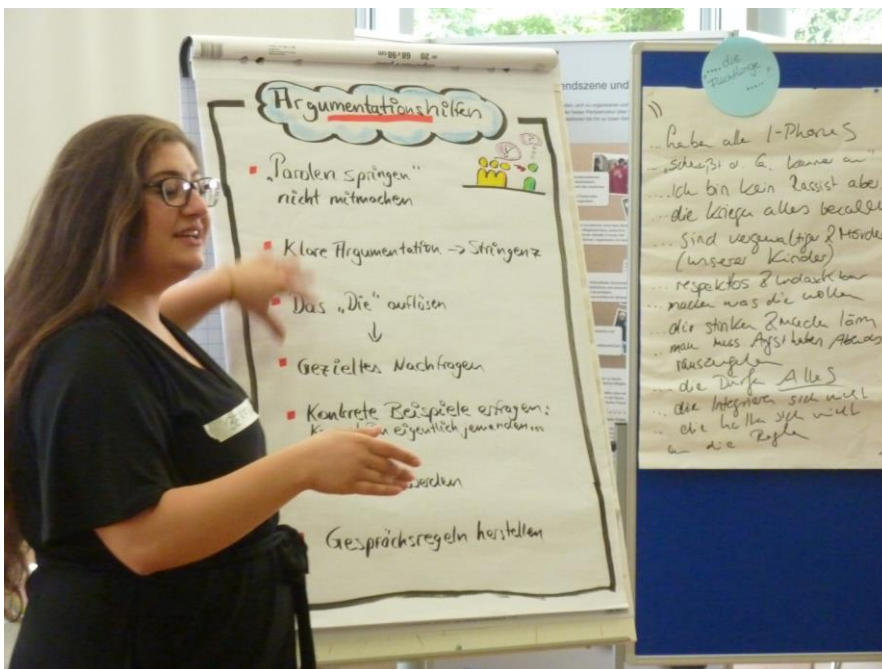 68 x 98 cm
20
Argumentationshilfen
"Parolen springen"
nicht mitmachen
Klare Argumentation -> Stringenz
Das "Die" auflösen
↓
Gezieltes Nachfragen
Konkrete Beispiele erfragen:
eigentlich jemanden...
werden
Gesprächsregeln herstellen
endszene und
.... die
Flüchtlinge
....
1)
... haben alle I-Phones
... Ich bin kein Rassist aber
... die kriegen alles bezahlt
... sind vergewaltiger & Mörder
(unserer Kinder)
... respektlos & undankbar
machen was die wollen
... die stinken & machen lärm
... man muss Angst haben Abends
rauszugehen
... die Dürfen Alles
... die Integrieren sich nicht
... die halten sich nicht
an die Regeln